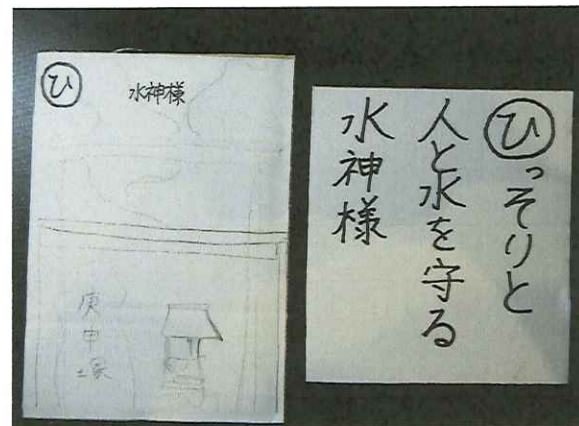 ひ
水神様
庚申塚
ひっそりと
人と水を守る
水神様